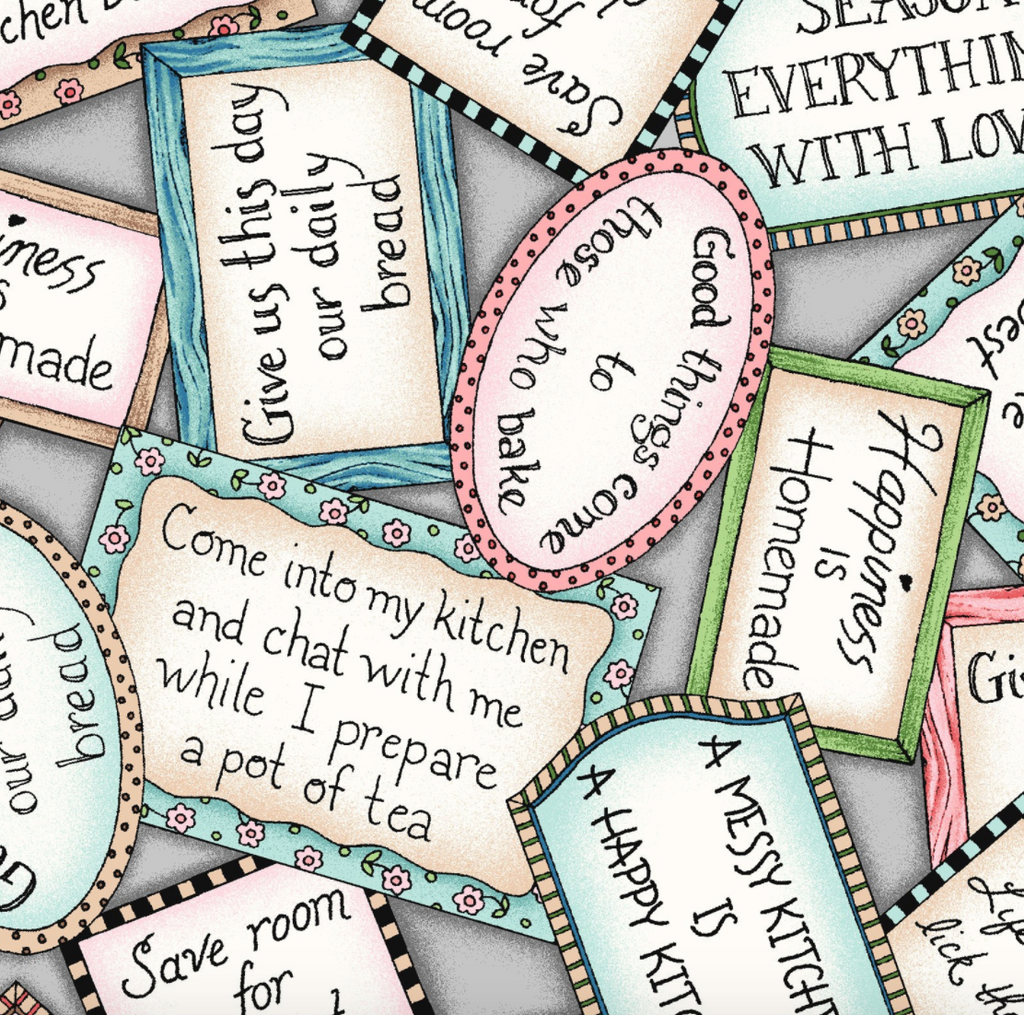 Save room
for
SEASON
EVERYTHIN
WITH LOV
Give us this day
our daily
bread
Good things come
to
those who bake
made
Happiness
is
Homemade
Come into my kitchen
and chat with me
while I prepare
a pot of tea
our daily
bread
A MESSY KITCHE
IS
A HAPPY KITC
Save room
for
Life
lick the